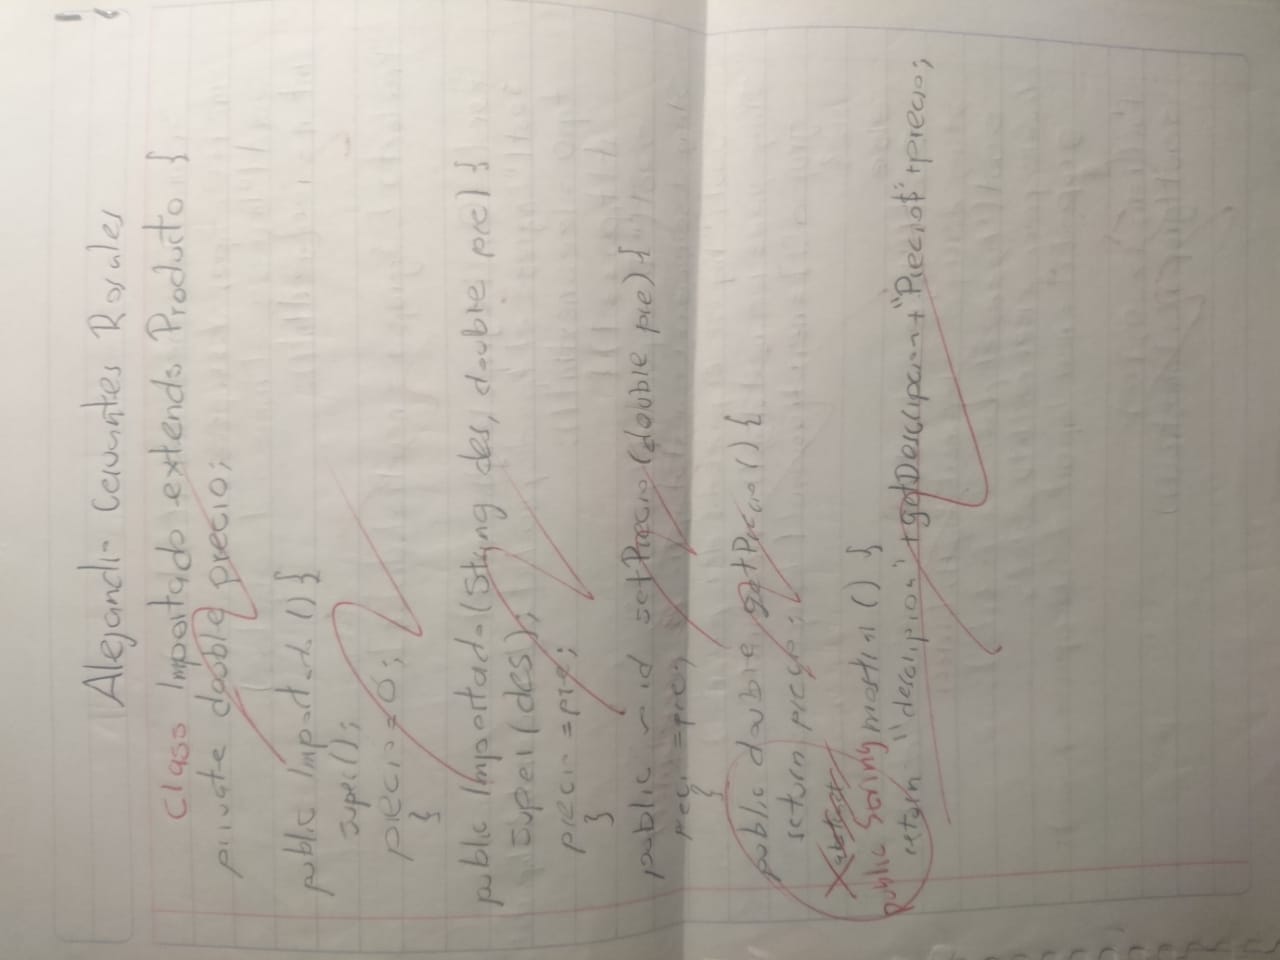 Alejandro Cervantes Rosales
Class Importado extends Producto {
private double precio;
public Importado () {
super();
precio=0;
}
public Importado (String des, double pre) {
super (des);
precio =pre;
}
public void setPrecio (double pre) {
preci =pre;
}
public double getPrecio () {
return precio;
abstract
public String mostrar () {
return "descripion" + getDescripcion + "Precio$" + precio;